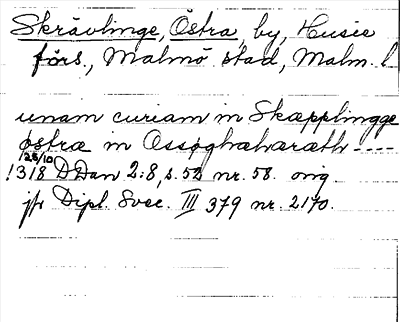 Skrävlinge, Östra, by, Husie
förs., Malmö stad, Malm. l
unam curiam in Skæpplingge
østræ in Ossøghahærath ----
28/10
1318 DDan 2:8, s. 52 nr. 58. orig.
jfr Dipl. Svec. III 379 nr. 2170.